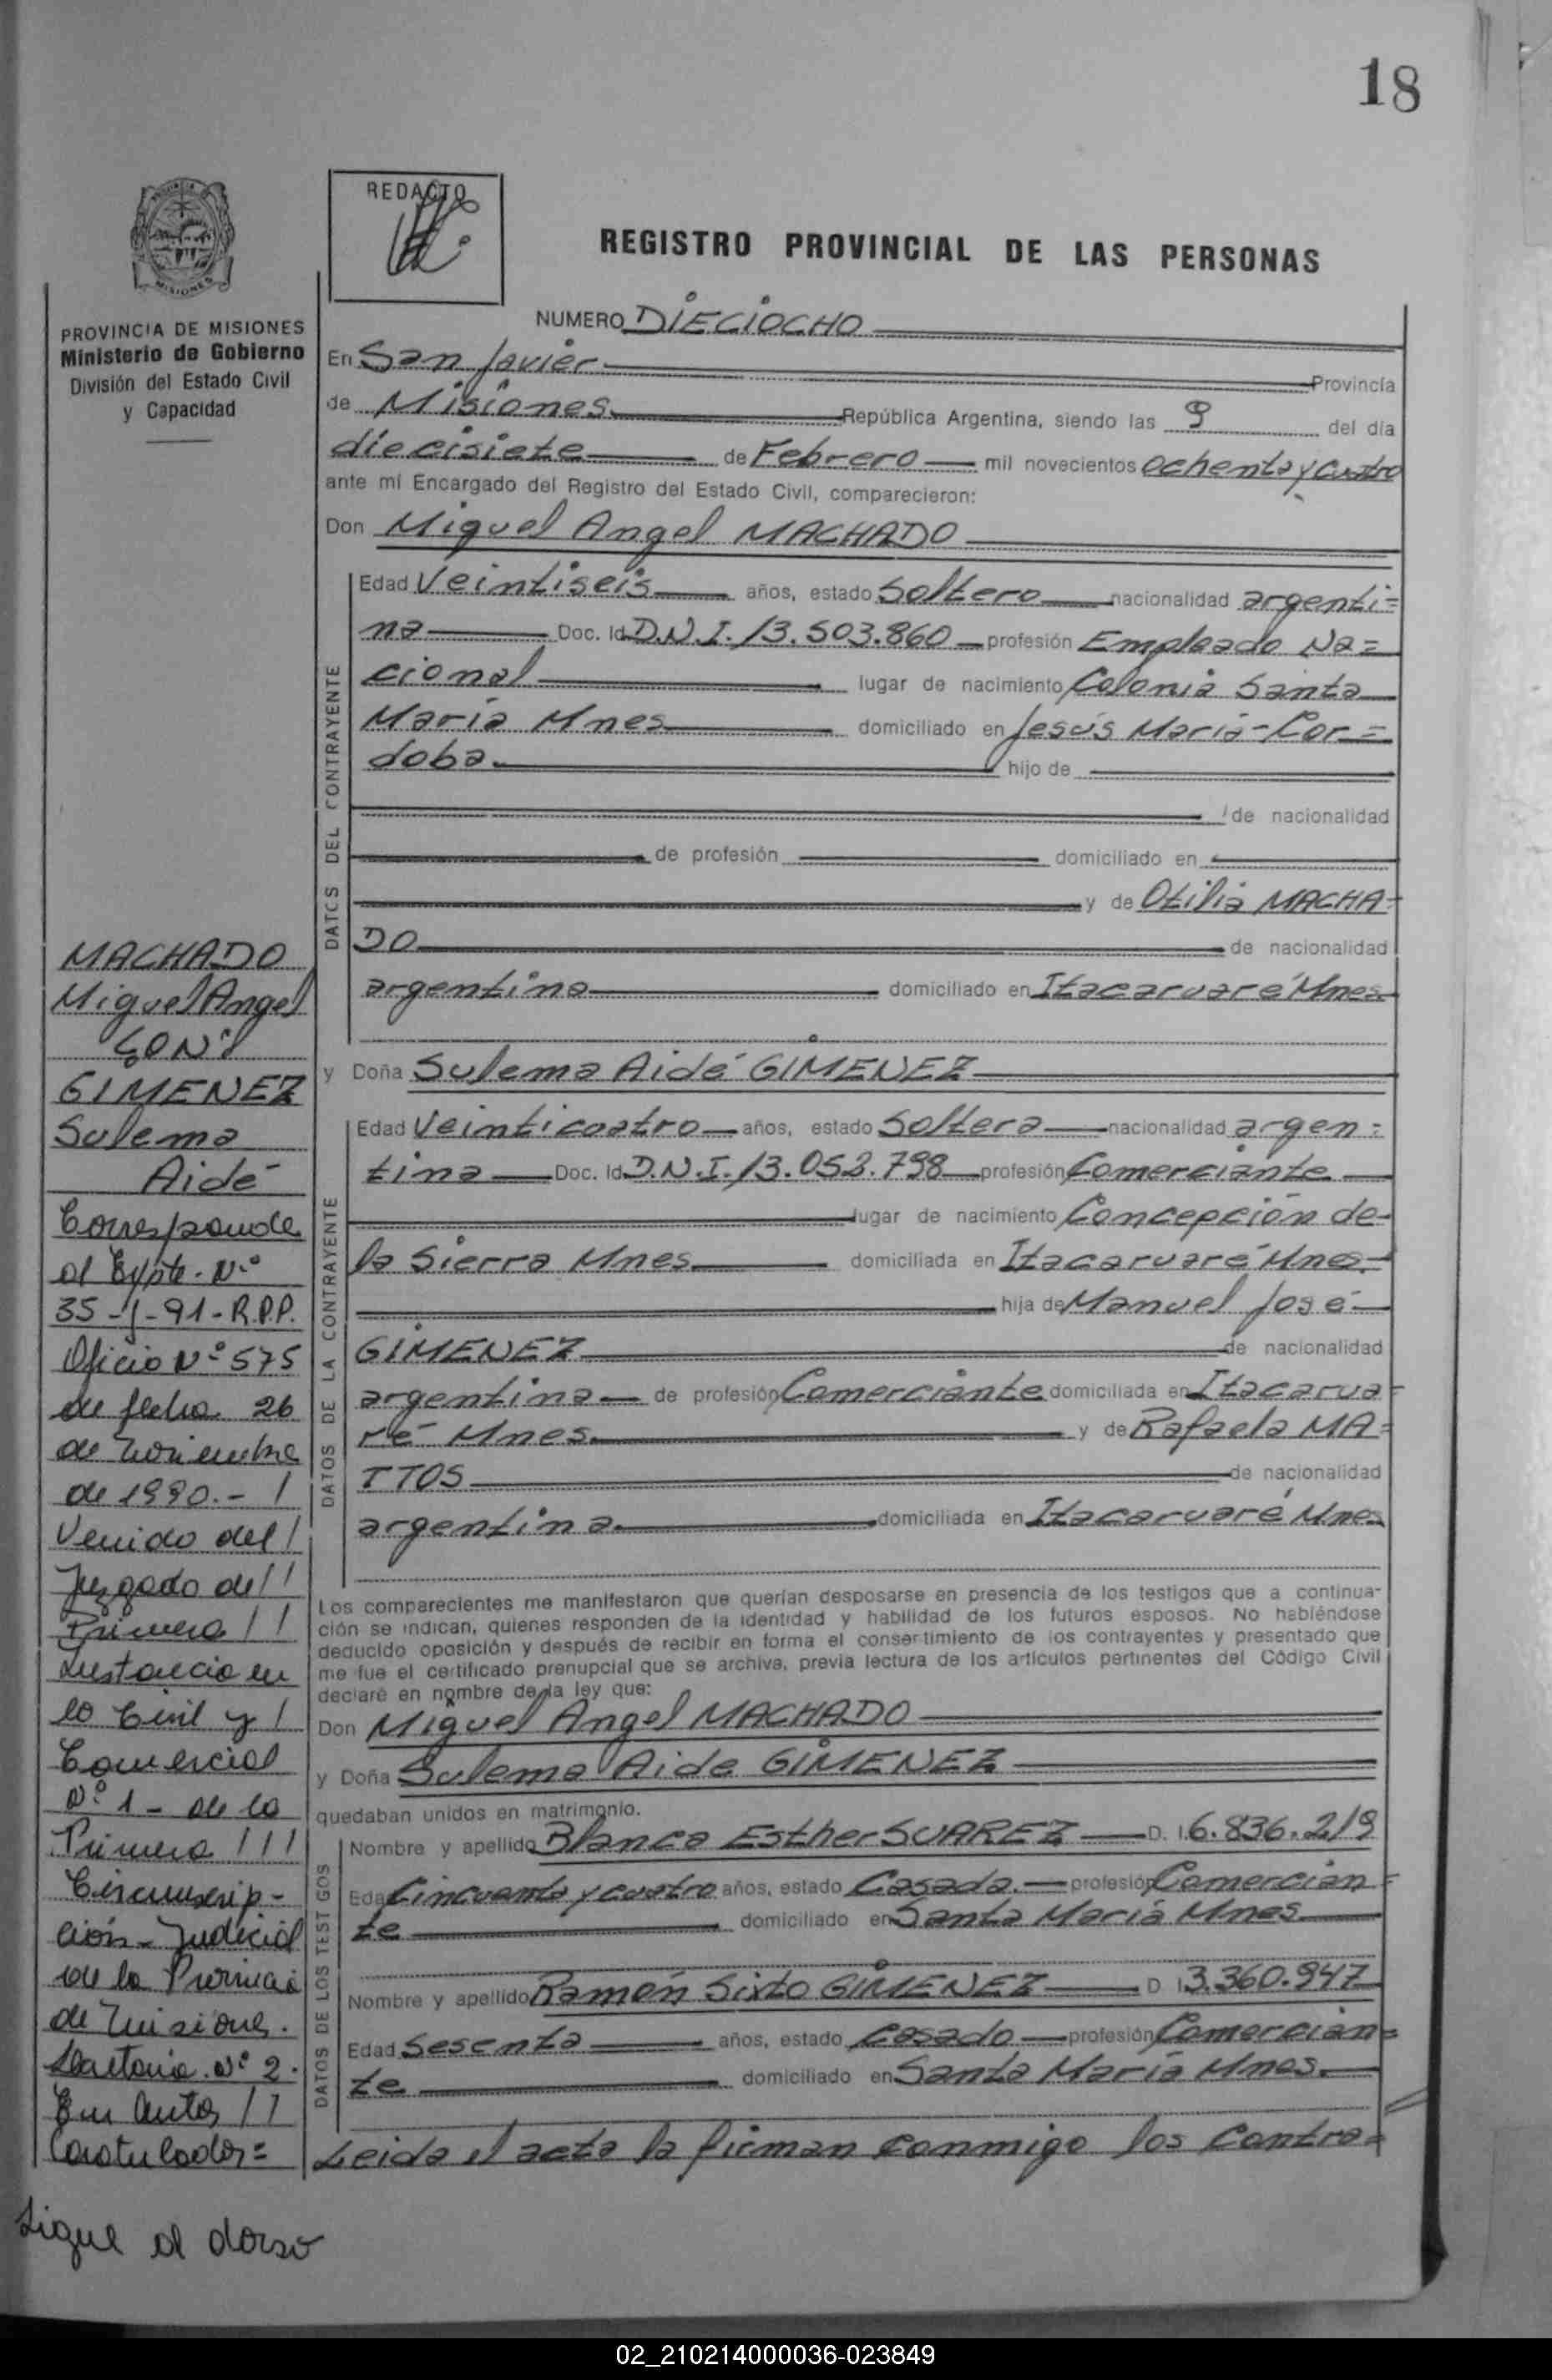 18
REDACTO
REGISTRO PROVINCIAL DE LAS PERSONAS
MISIONES
PROVINCIA DE MISIONES
Ministerio de Gobierno
División del Estado Civil
y Capacidad
NUMERO DIECIOCHO
En San Javier Provincia
de Misiones República Argentina, siendo las 9 del día
diecisiete de Febrero mil novecientos ochenta y cuatro
ante mi Encargado del Registro del Estado Civil, comparecieron:
Don Miguel Angel MACHADO
DATOS DEL CONTRAYENTE
Edad Veintiseis años, estado Soltero nacionalidad argenti=
na Doc. Id. D.N.I. 13.503.860 profesión Empleado Na=
cional lugar de nacimiento Colonia Santa
María Mnes domiciliado en Jesús María-Cor=
doba. hijo de
de nacionalidad
de profesión domiciliado en
y de Otilia MACHA=
DO de nacionalidad
argentina domiciliado en Itacaruaré Mnes
y Doña Sulema Aidé GIMENEZ
DATOS DE LA CONTRAYENTE
Edad Veinticuatro años, estado Soltera nacionalidad argen=
tina Doc. Id. D.N.I. 13.052.798 profesión Comerciante
lugar de nacimiento Concepción de
la Sierra Mnes domiciliada en Itacaruaré Mnes.
hija de Manuel José
GIMENEZ de nacionalidad
argentina de profesión Comerciante domiciliada en Itacarua=
ré Mnes. y de Rafaela MA=
TTOS de nacionalidad
argentina domiciliada en Itacaruaré Mnes
Los comparecientes me manifestaron que querían desposarse en presencia de los testigos que a continua-
ción se indican, quienes responden de la identidad y habilidad de los futuros esposos. No habiéndose
deducido oposición y después de recibir en forma el consentimiento de los contrayentes y presentado que
me fue el certificado prenupcial que se archiva, previa lectura de los artículos pertinentes del Código Civil
declaré en nombre de la ley que:
Don Miguel Angel MACHADO
y Doña Sulema Aide GIMENEZ
quedaban unidos en matrimonio.
DATOS DE LOS TESTIGOS
Nombre y apellido Blanca Esther SUAREZ D. I. 6.836.219
Edad Cincuenta y cuatro años, estado Casada. profesión Comercian=
te domiciliado en Santa María Mnes
Nombre y apellido Ramón Sixto GIMENEZ D I 3.360.947
Edad Sesenta años, estado Casado profesión Comercian=
te domiciliado en Santa María Mnes.
Leida el acta la firman conmigo los contra=
MACHADO
Miguel Angel
CON
GIMENEZ
Sulema
Aidé
Corresponde
al Expte. Nº
35-J-91-R.P.P.
Oficio Nº 575
de fecha 26
de Noviembre
de 1990.-
Venido del
Juzgado de
Primera
Instancia en
lo Civil y
Comercial
Nº 1 - de la
Primera
Circunscrip-
ción Judicial
de la Provincia
de Misiones.
Secretaria Nº 2.
En Autos
Caratulados=
Sigue al dorso
02_210214000036-023849